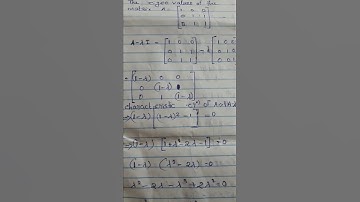 The eigen values of the
matrix A = [1 0 0
0 1 1
0 1 1]
A-λI = [1 0 0
0 1 1
0 1 1] - λ [1 0 0
= [(1-λ) 0 0
0 (1-λ)
0 1 (1-λ)]
characteristic eqn of
⇒ (1-λ) [(1-λ)² - 1] = 0
⇒ (1-λ) [1+λ²-2λ-1] = 0
(1-λ) (λ²-2λ) = 0
λ² - 2λ - λ³ + 2λ² = 0